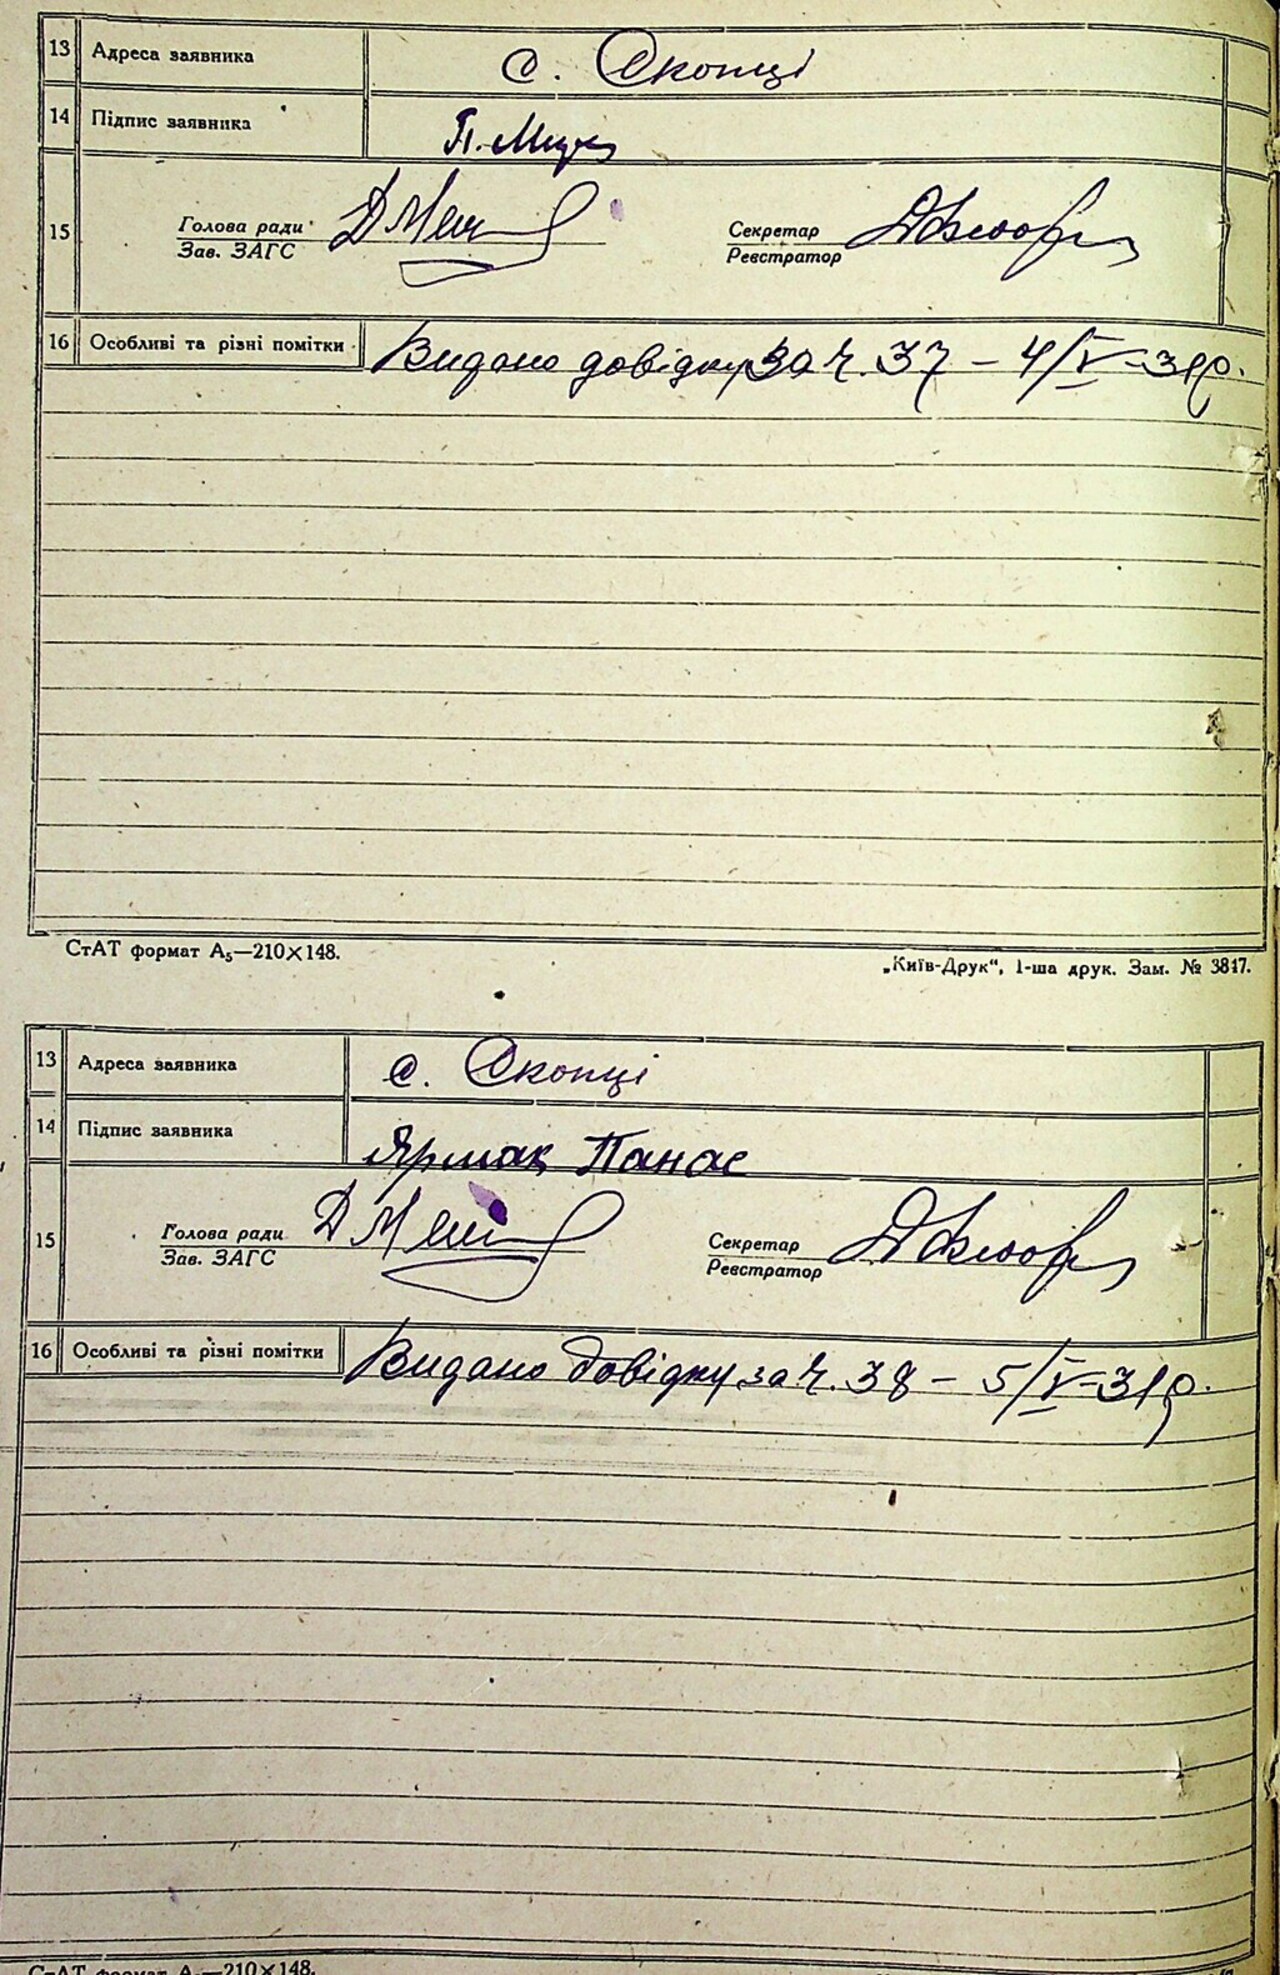 13 Адреса заявника с. Скопці
14 Підпис заявника П.
15 Голова ради Секретар
Зав. ЗАГС Реєстратор
16 Особливі та різні помітки Видано довідку за ч. 37 – 4/V–31р.
СтАТ формат А₅—210×148.
„Київ-Друк“, 1-ша друк. Зам. № 3847.
13 Адреса заявника с. Скопці
14 Підпис заявника Ярмак Панас
15 Голова ради Секретар
Зав. ЗАГС Реєстратор
16 Особливі та різні помітки Видано довідку за ч. 38 – 5/V–31р.
СтАТ формат А₅—210×148.